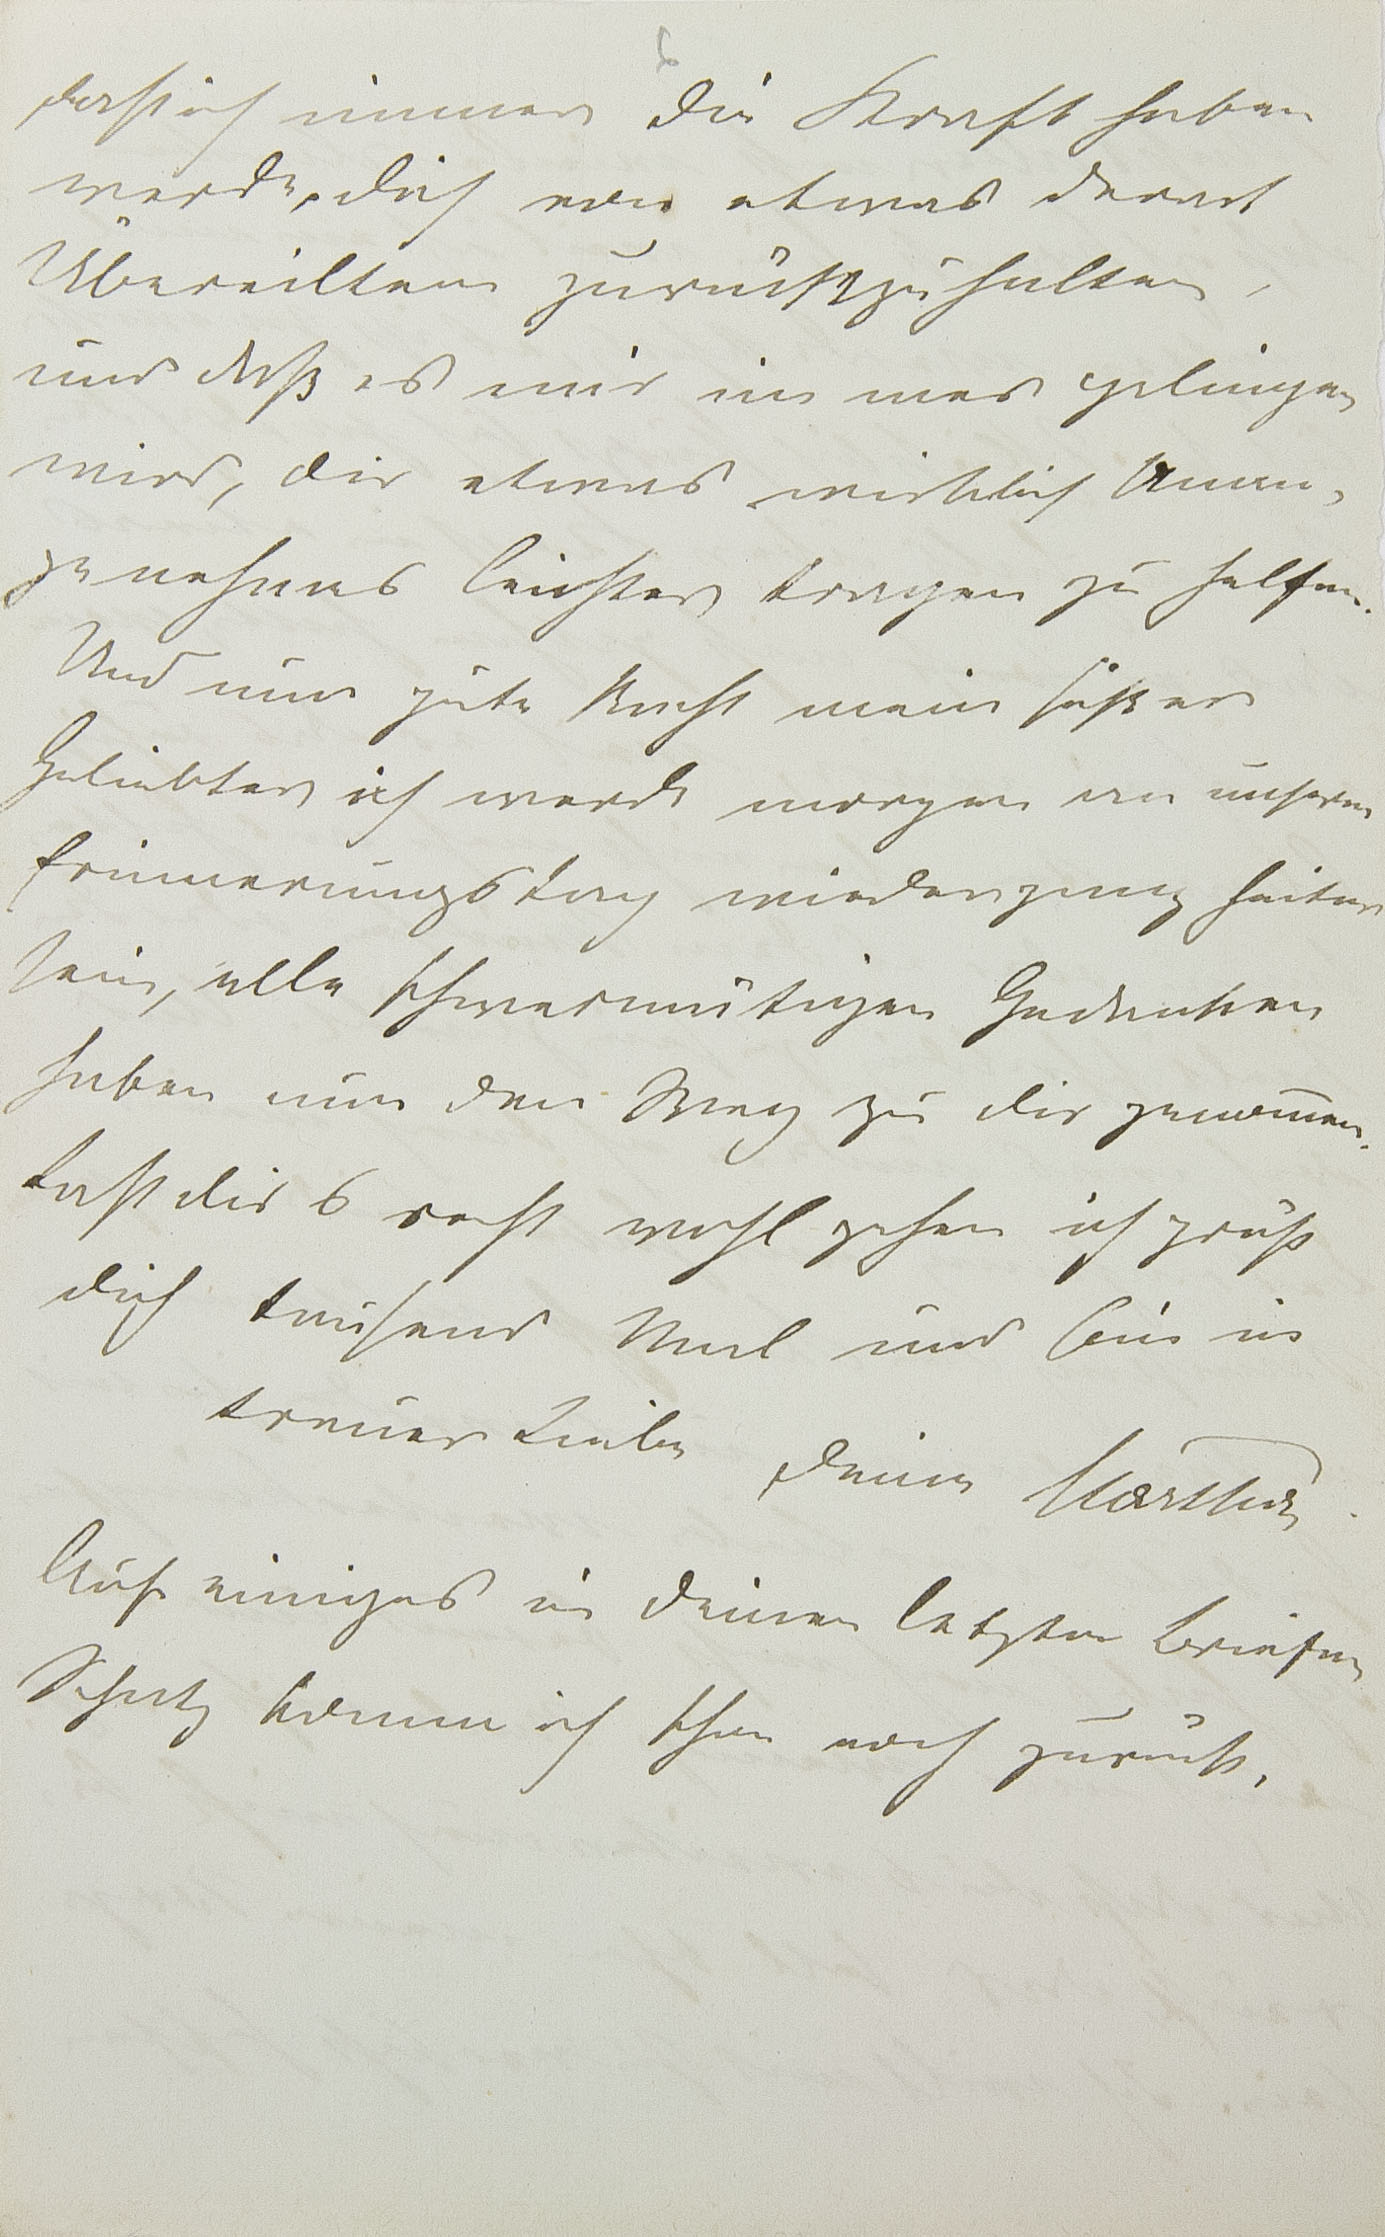 daß ich immer die Kraft haben
werde, dich von etwas derart
Übereiltem zurückzuhalten,
und daß es mir immer gelingen
wird, dir etwas wirklich Unan-
genehmes leichter tragen zu helfen.
Und nun gute Nacht mein süßer
Geliebter ich werde morgen an unserm
Erinnerungstag wieder ganz heiter
sein, alle schwermütigen Gedanken
haben nun den Weg zu dir genom̅en.
Laß dir's recht wohl gehen ich grüß
dich tausend Mal und bin in
treuer Liebe deine Martha.
Auf einiges in deinen letzten Briefen
Schatz komme ich schon noch zurück.